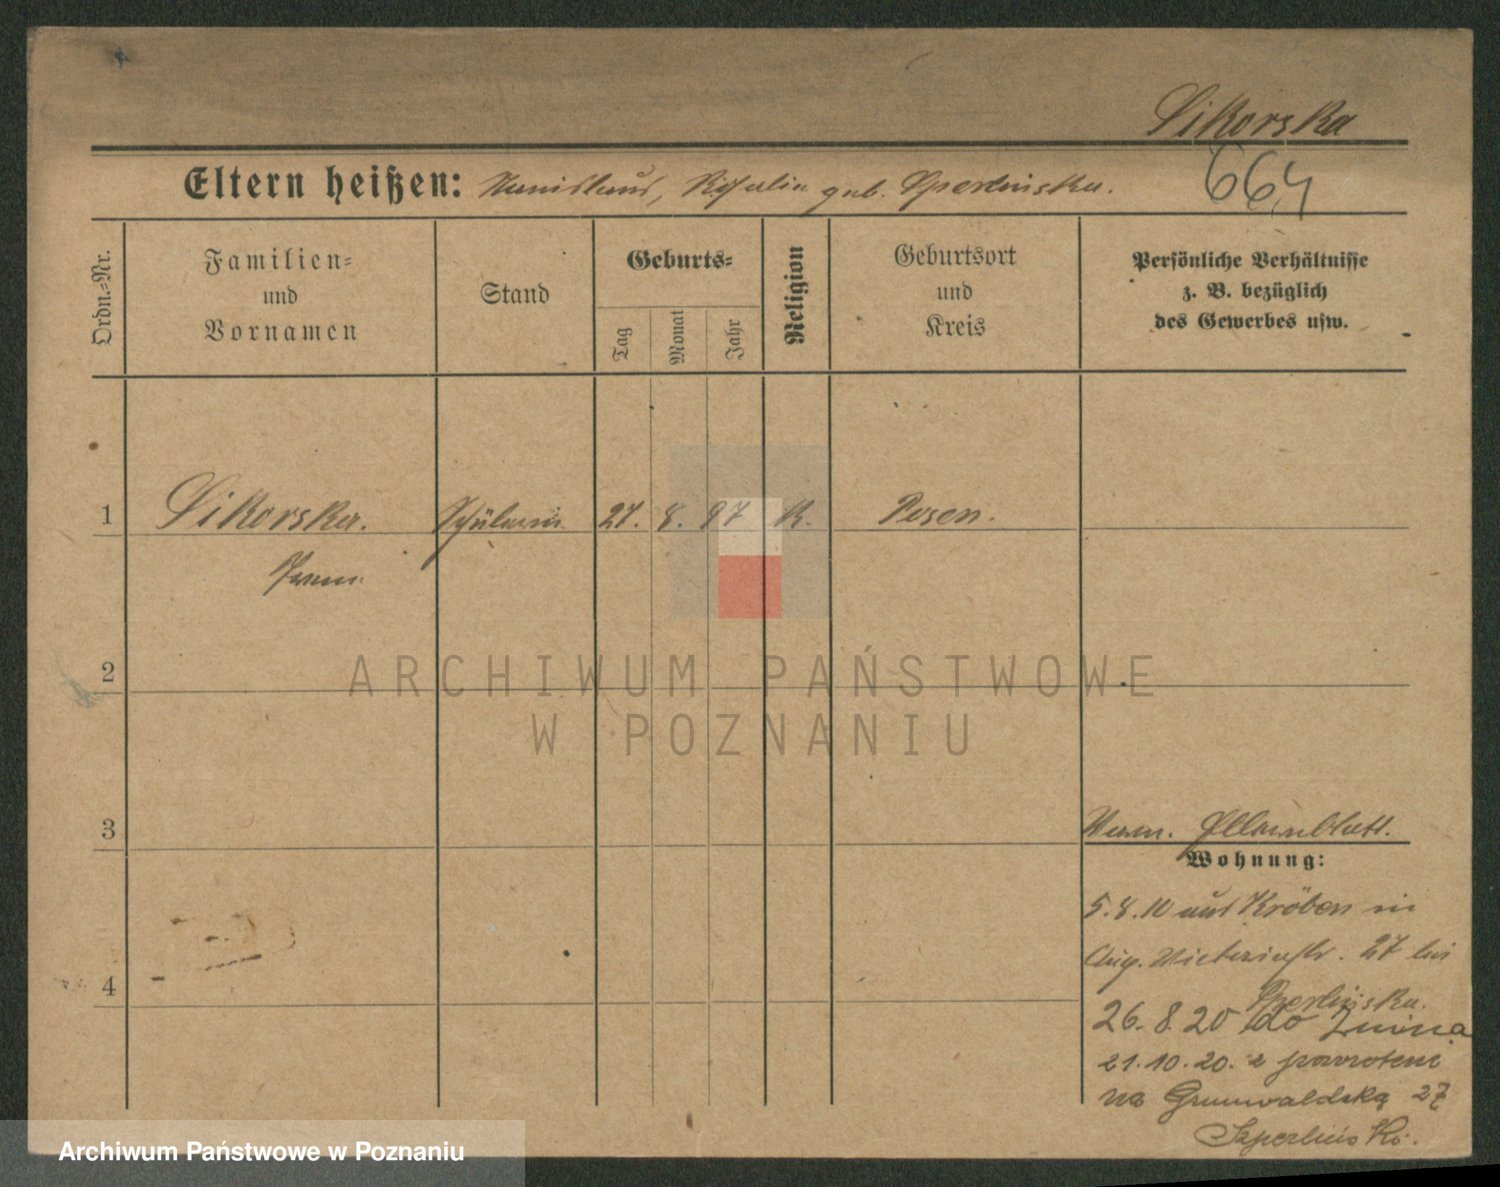 Sikorska
664
Eltern heißen: Stanislaus, Rosalie geb. Sperlinska.
Ordn.=Nr.
Familien=
und
Vornamen
Stand
Geburts=
Tag
Monat
Jahr
Religion
Geburtsort
und
Kreis
Persönliche Verhältnisse
z. B. bezüglich
des Gewerbes usw.
1
Sikorska.
Schülerin
27.
8.
97
K.
Posen.
2
ARCHIWUM PAŃSTWOWE
W POZNANIU
3
Elternblatt.
Wohnung:
5.8.10 aus Kröben in
Aug. Victoriastr. 27 bei
Sperlinska.
4
26.8.20 do Żnina
21.10.20. z powrotem
na Grunwaldską 27
Szperlińska.
Archiwum Państwowe w Poznaniu